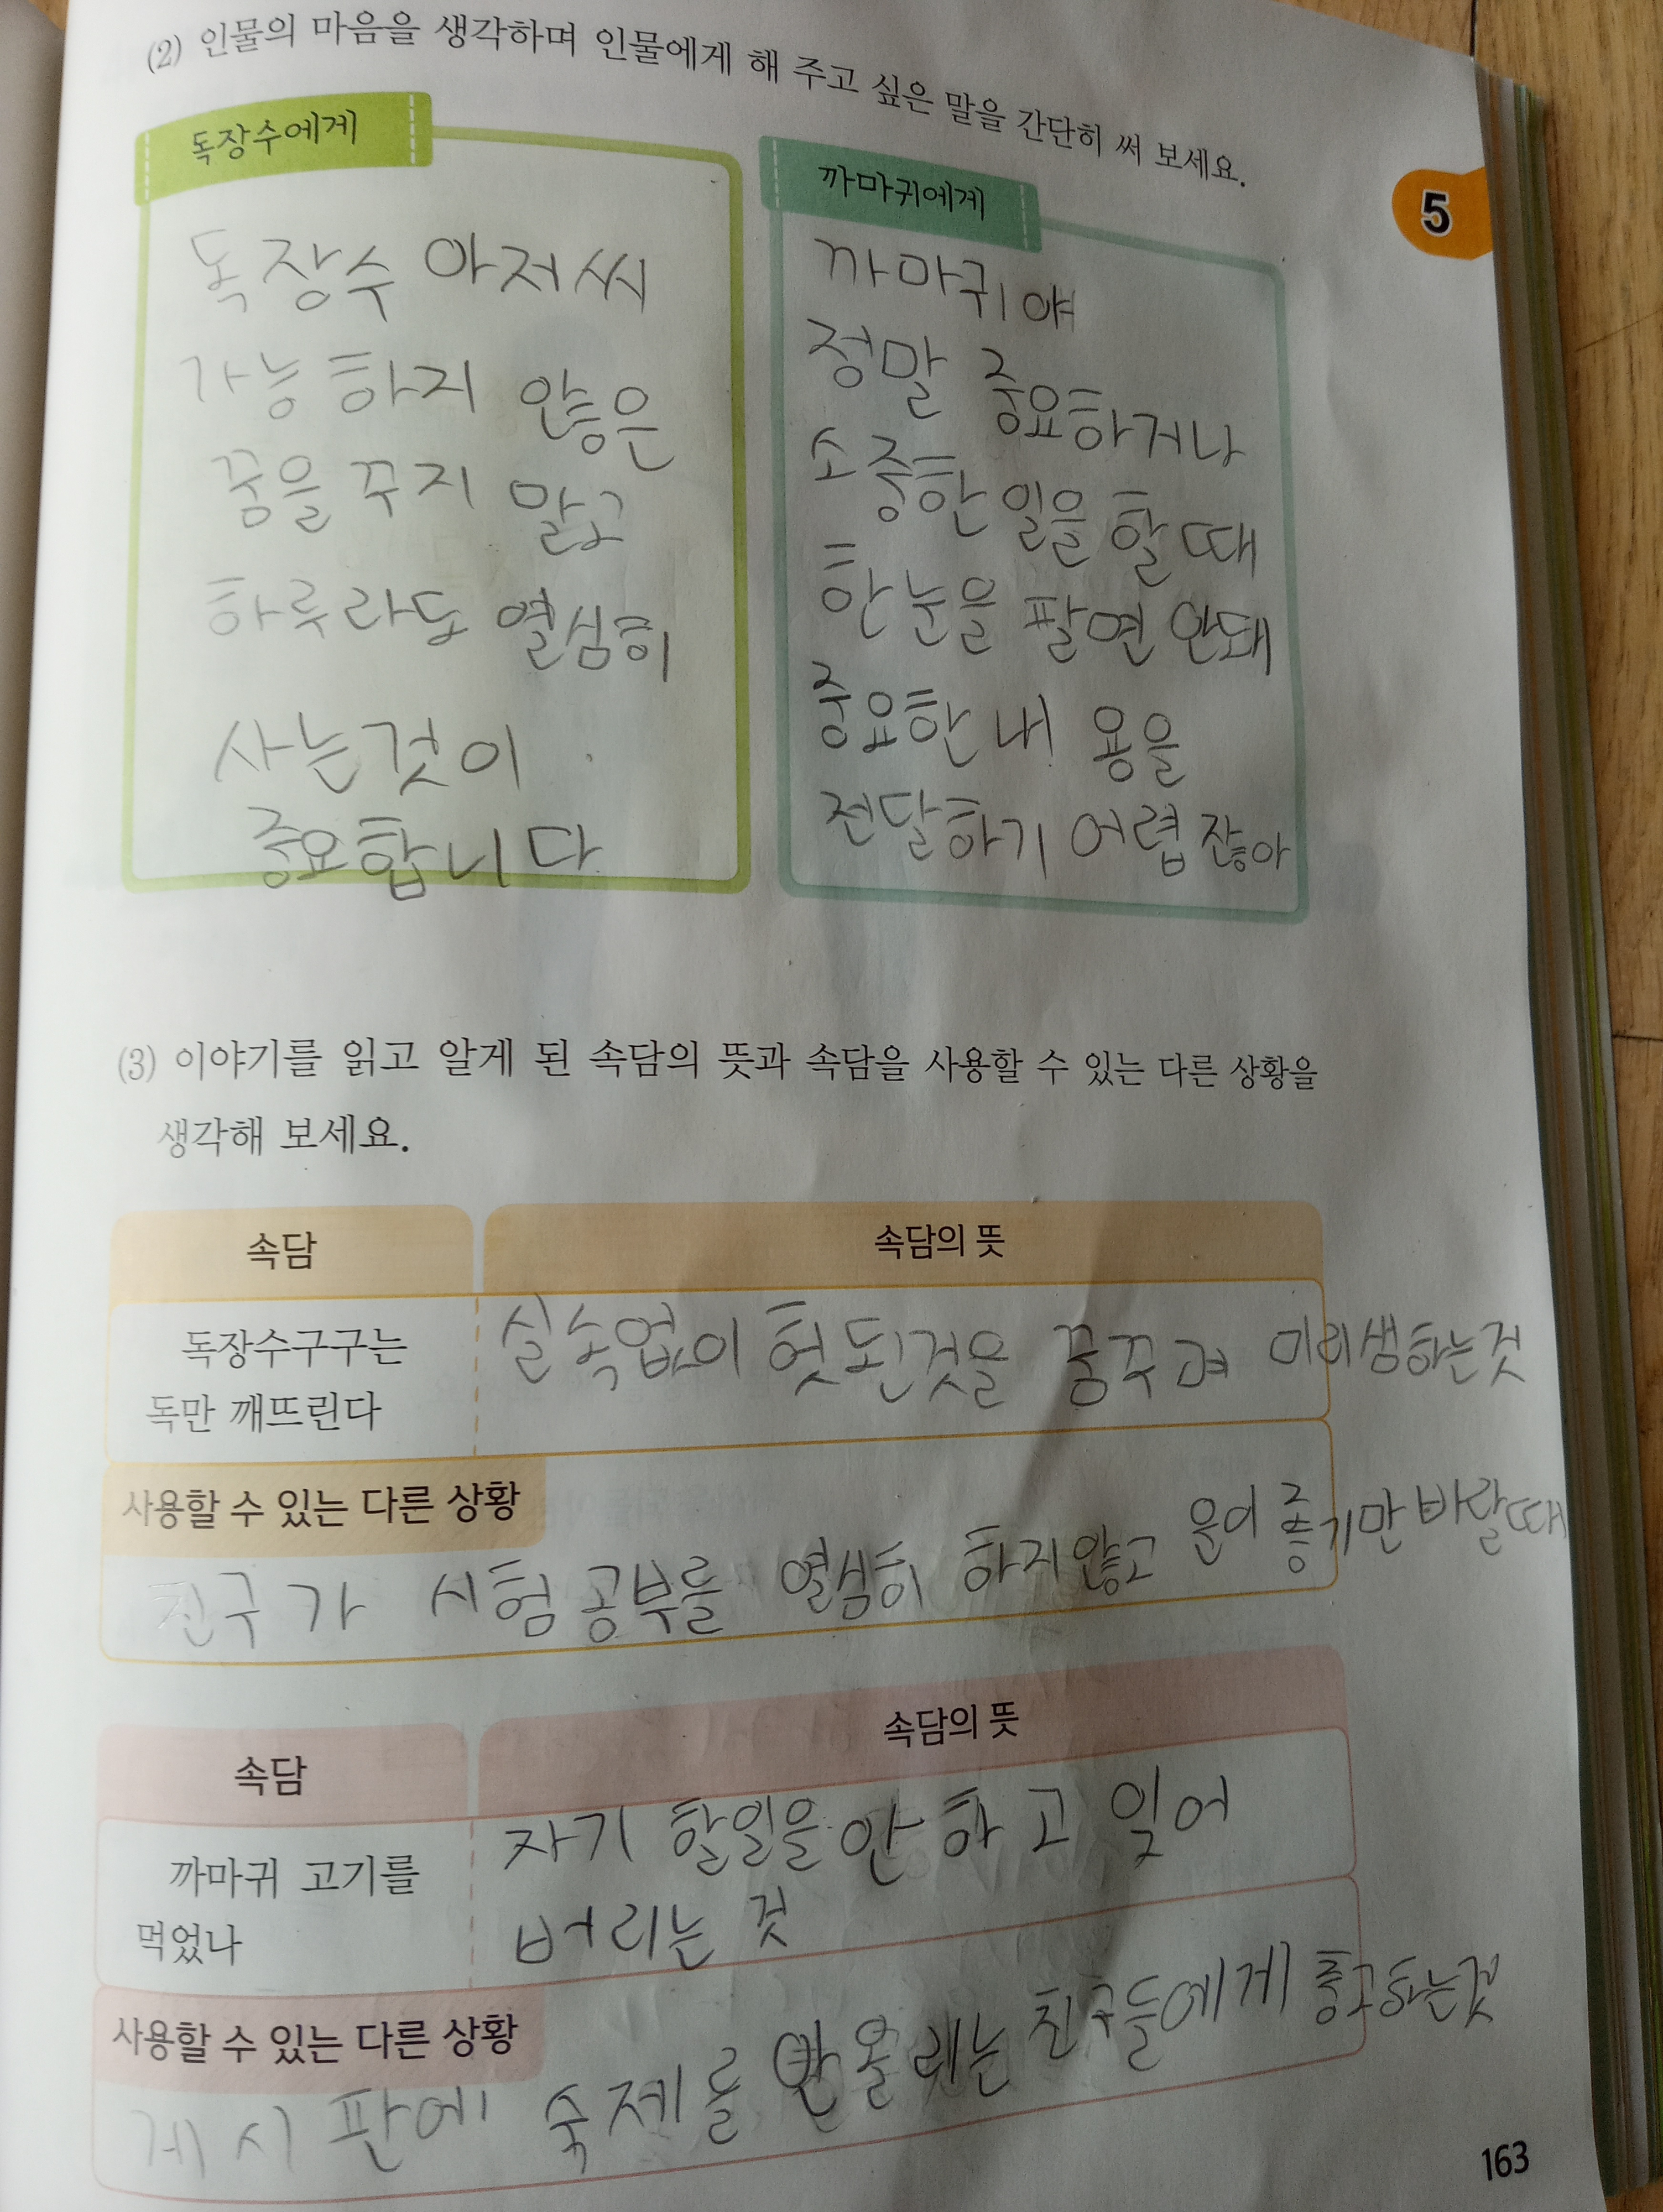 (2) 인물의 마음을 생각하며 인물에게 해 주고 싶은 말을 간단히 써 보세요.
5
독장수에게
독장수 아저씨
가능하지 않은
꿈을 꾸지 말고
하루라도 열심히
사는것이
중요합니다
까마귀에게
까마귀야
정말 중요하거나
소중한 일을 할 때
한눈을 팔면 안돼
중요한 내용을
전달하기 어렵잖아
(3) 이야기를 읽고 알게 된 속담의 뜻과 속담을 사용할 수 있는 다른 상황을
생각해 보세요.
속담 속담의 뜻
독장수구구는
독만 깨뜨린다
실속없이 헛된것을 꿈꾸며 미리생하는것
사용할 수 있는 다른 상황
친구가 시험공부를 열심히 하지않고 운이 좋기만 바랄때
속담 속담의 뜻
까마귀 고기를
먹었나
자기 할일을 안 하고 잊어
버리는 것
사용할 수 있는 다른 상황
게시판에 숙제를 안올리는 친구들에게 충고하는것
163